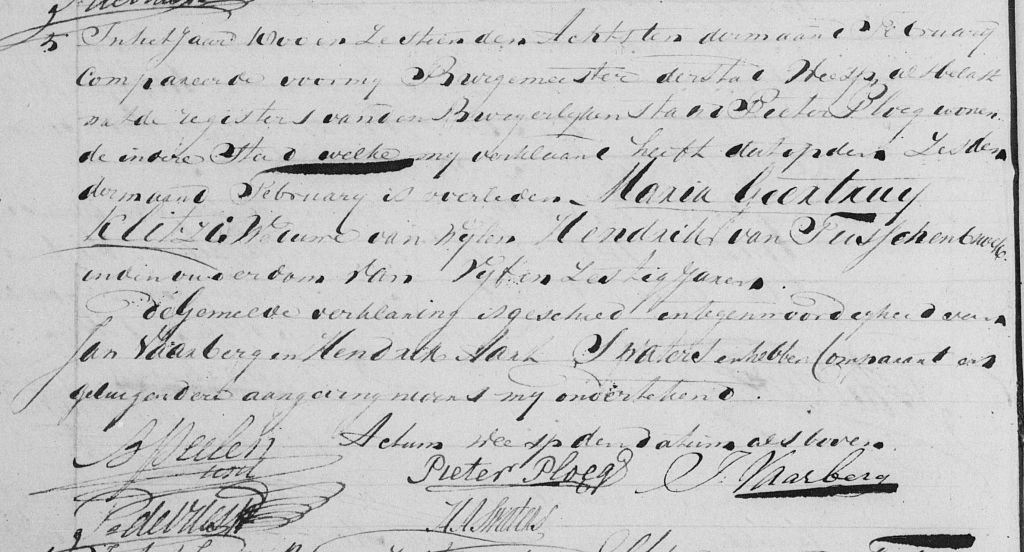 5 In het Jaar 1800 en Zestien den Achtsten dermaand February
Compareerde voor my Burgemeester der stad Weesp, als belast
met de registers van den Burgerlyken staat Pieter Ploeg wonen
de in deze Stad welke my verklaard heeft dat op den Zesden
dermaand February is overleden Maria Geertruy
Klitzi Weduwe van Wylen Hendrik van Tusschenbroek
in den ouderdom van Vyf en Zestig Jaren.
de Gemelde verklaring is geschied in tegenwoordigheid van
Jan Vaarberg en Hendrik Swaters en hebben Comparant en
getuigen deze aangeving nevens my ondertekend.
Actum Weesp den datum als boven
Pieter Ploeg J. Vaarberg
P. de Vries